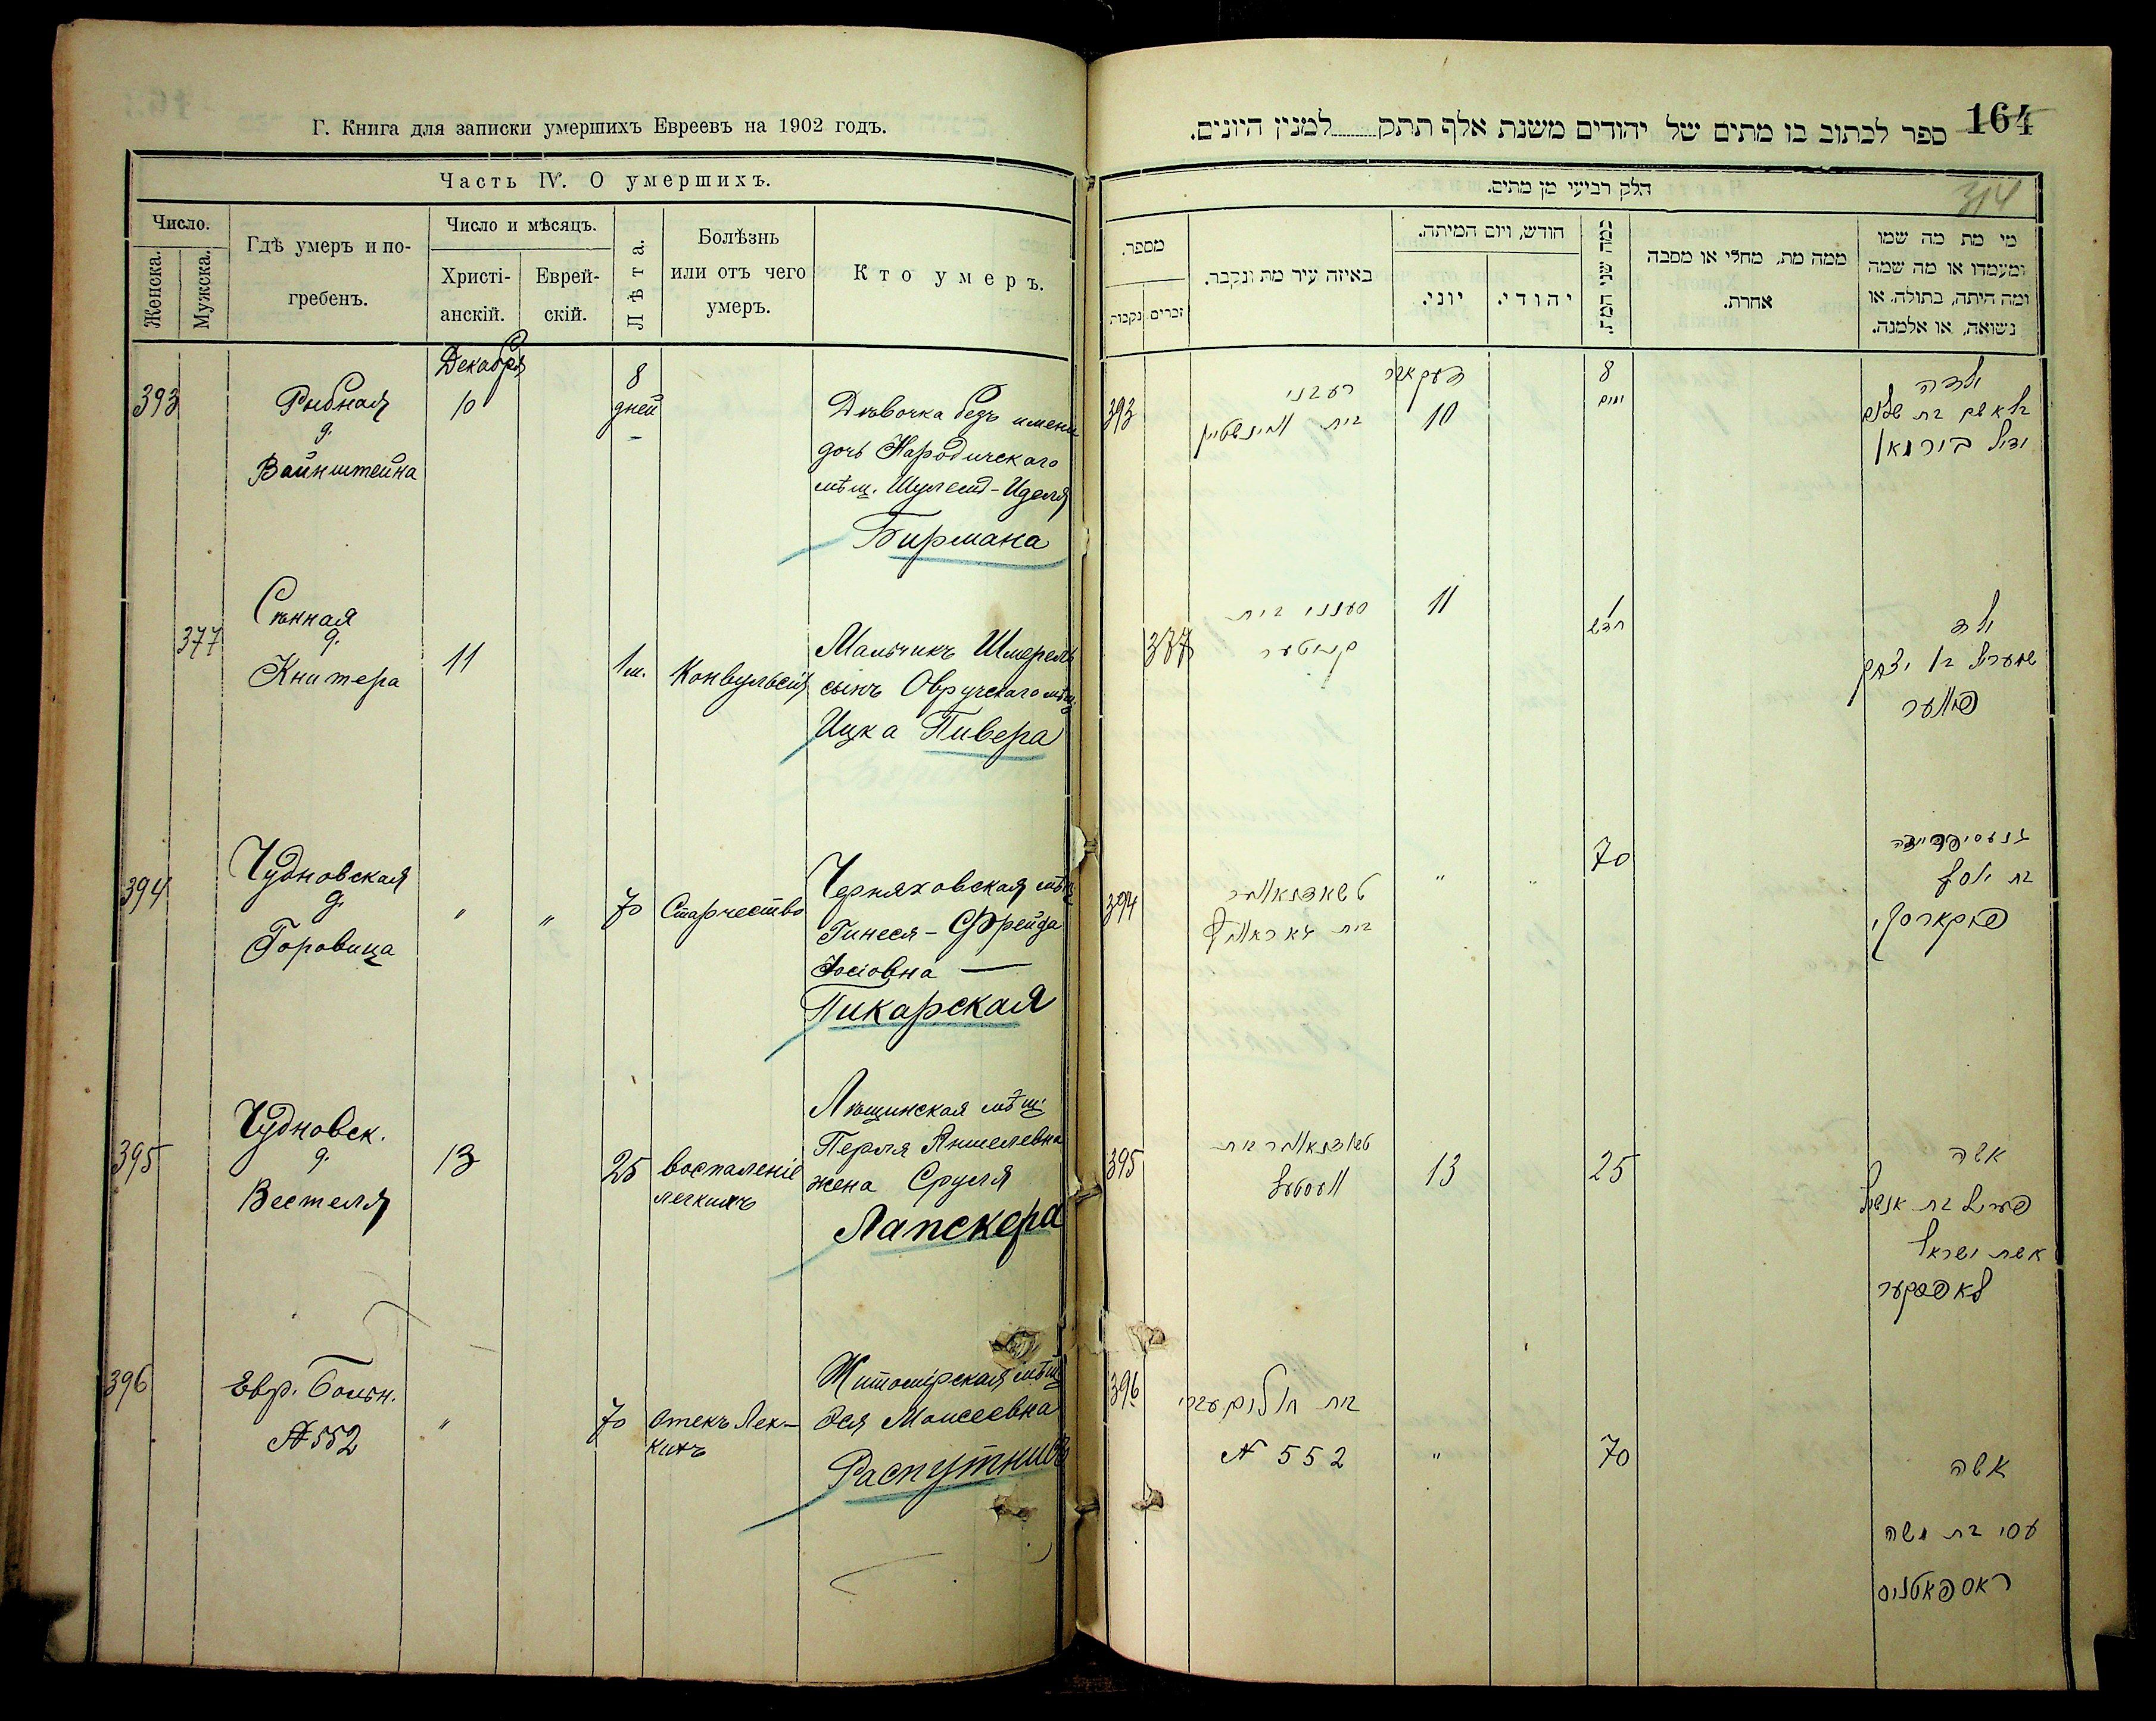 Г. Книга для записки умершихъ Евреевъ на 1902 годъ.
Часть IV. О умершихъ.
Число.
Женска.
Мужска.
Гдѣ умеръ и по-
гребенъ.
Число и мѣсяцъ.
Христі-
анскій.
Еврей-
скій.
Лѣта.
Болѣзнь
или отъ чего
умеръ.
Кто умеръ.
393
Рыбная
д.
Вайнштейна
Декабря
10
8
дней
Дѣвочка безъ имени
дочь Народичскаго
мѣщ. Шулема-Иделя
Бирмана
377
Сѣнная
д.
Книтера
11
1 м.
Конвульсія
Мальчикъ Шмерель
сынъ Овручскаго мѣщ
Ицка Пивера
394
Чудновская
д.
Горовица
"
"
70
Старчество
Черняховская мѣщ
Гинеся-Фрейда
Іосіовна —
Пикарская
395
Чудновск.
д.
Вестеля
13
25
воспаленіе
легкихъ
Лещинская мѣщ.
Перля Аншелевна
жена Сруля
Лапскера
396
Евр. Больн.
№ 552
"
70
Отекъ Лег-
кихъ
Житомірская мѣщ
Эся Моисеевна
Распутнисъ
164
ספר לכתוב בו מתים של יהודים משנת אלף תתק למנין היונים.
314
חלק רביעי מן מתים.
מספר.
נקבות
זכרים.
באיזה עיר מת ונקבר.
חודש, ויום המיתה.
יוני.
יהודי.
כמה שני המת
ממה מת, מחלי או מסבה
אחרת.
מי מת מה שמו
ומעמדו או מה שמה
ומה היתה, בתולה, או
נשואה, או אלמנה.
393
בית וויינשטיין
דעקאבר
10
8
ימים
ילדה
בלא שם בת שלום
יודיל בירמאן
377
סעננייי בית
קניטער
11
1
חדש
ילד
שמעריל בן יצחק
פיווער
394
בית גאראוויץ
"
"
70
בת יוסף
פיקארסקי
395
טשודנאווער בית
וועסטעל
13
25
אשה
פעריל בת אנשיל
אשת ישראל
לאפסקער
396
בית חולים עברי
№ 552
"
70
אשה
עסי בת משה
ראספאטניס